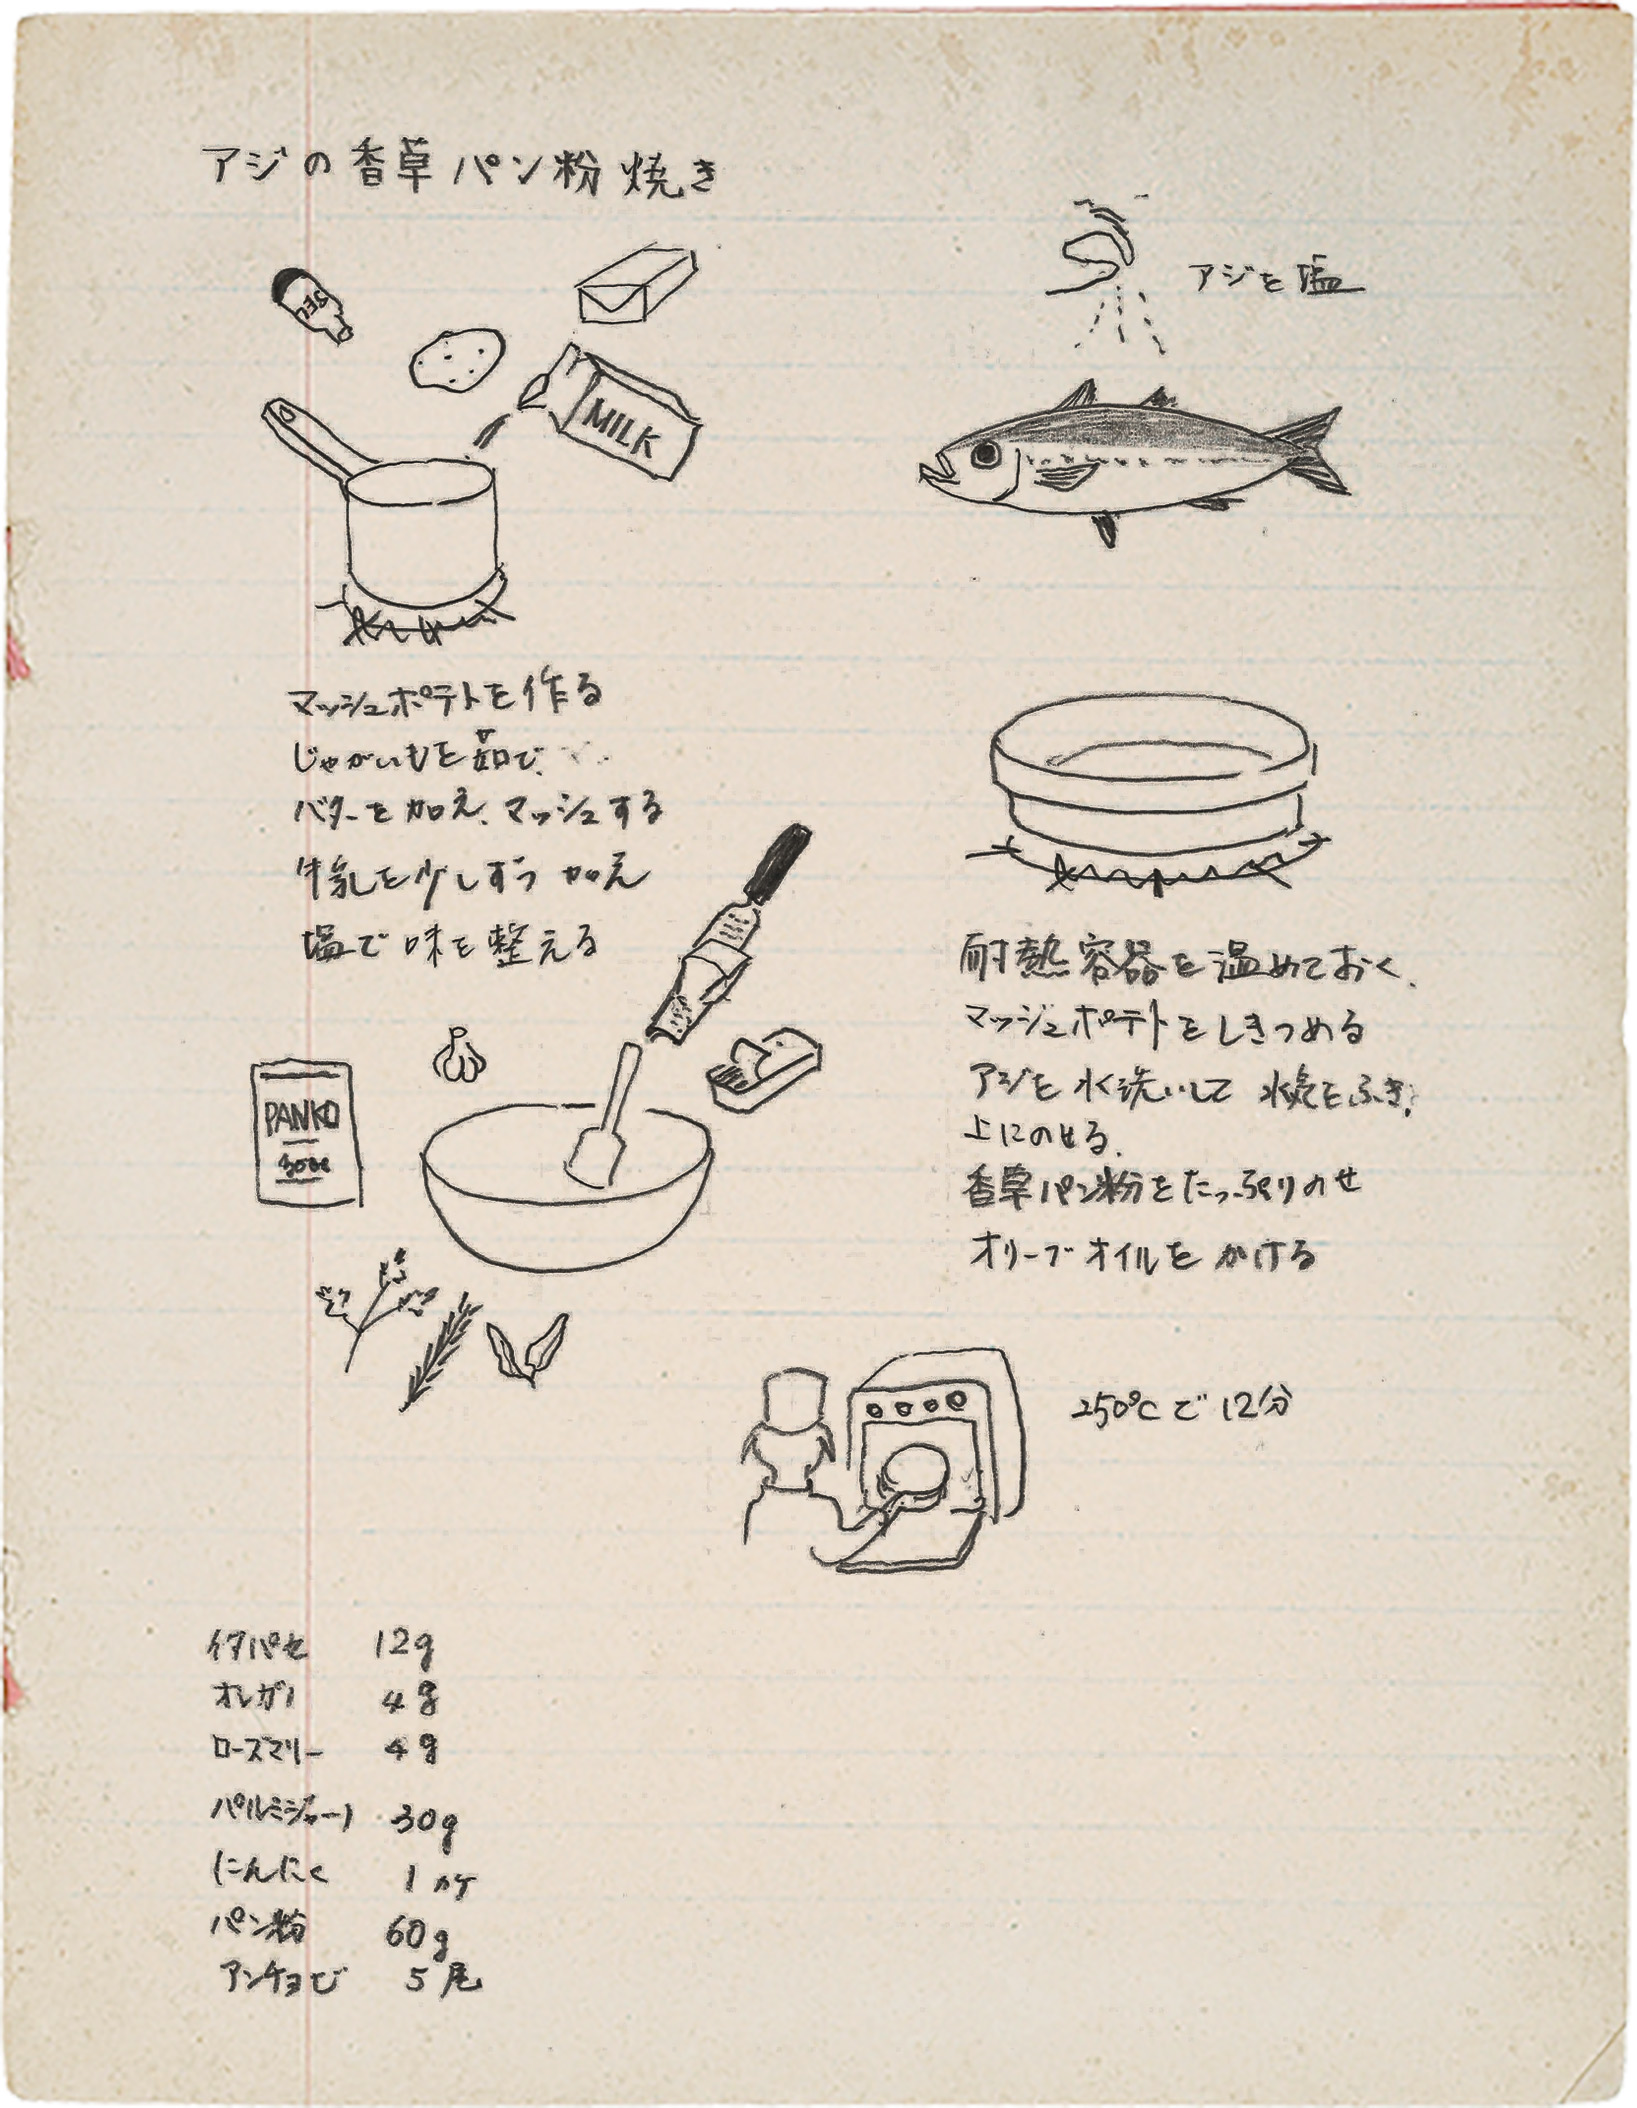 アジの香草パン粉焼き
SEL
MILK
アジを塩
マッシュポテトを作る
じゃがいもを茹で、
バターを加え、マッシュする
牛乳を少しずつ加え
塩で味を整える
PANKO
耐熱容器を温めておく、
マッシュポテトをしきつめる
アジを水洗いして 水気をふき、
上にのせる、
香草パン粉をたっぷりのせ
オリーブオイルをかける
250℃で12分
イタパセ 12g
オレガノ 4g
ローズマリー 4g
パルミジャーノ 30g
にんにく 1ヶ
パン粉 60g
アンチョビ 5尾